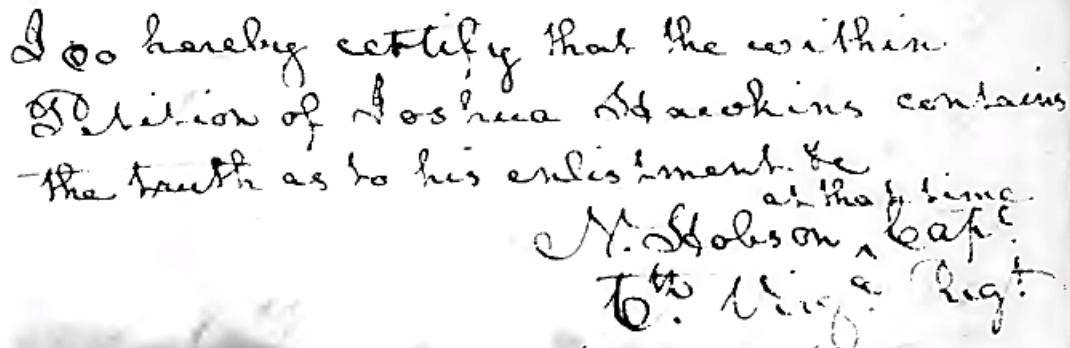 I do hereby certify that the within
Petition of Joshua Hawkins contains
the truth as to his enlistment &c
at that time
N. Hobson ‸ Capt.
6th. Virga. Regt.